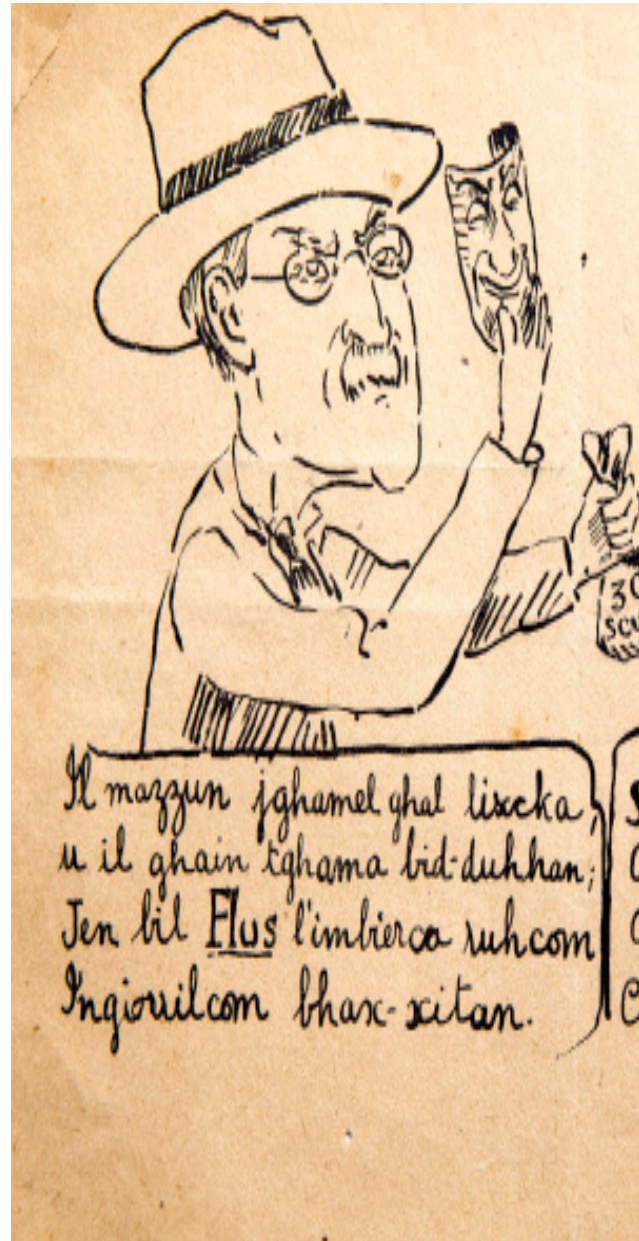 30
scu
Il mazzun jghamel ghal lixcka,
u il ghain tghama bid-duhhan;
Jen bil Flus l'imbierca ruhcom
Ingiorrilcom bhax-xitan.